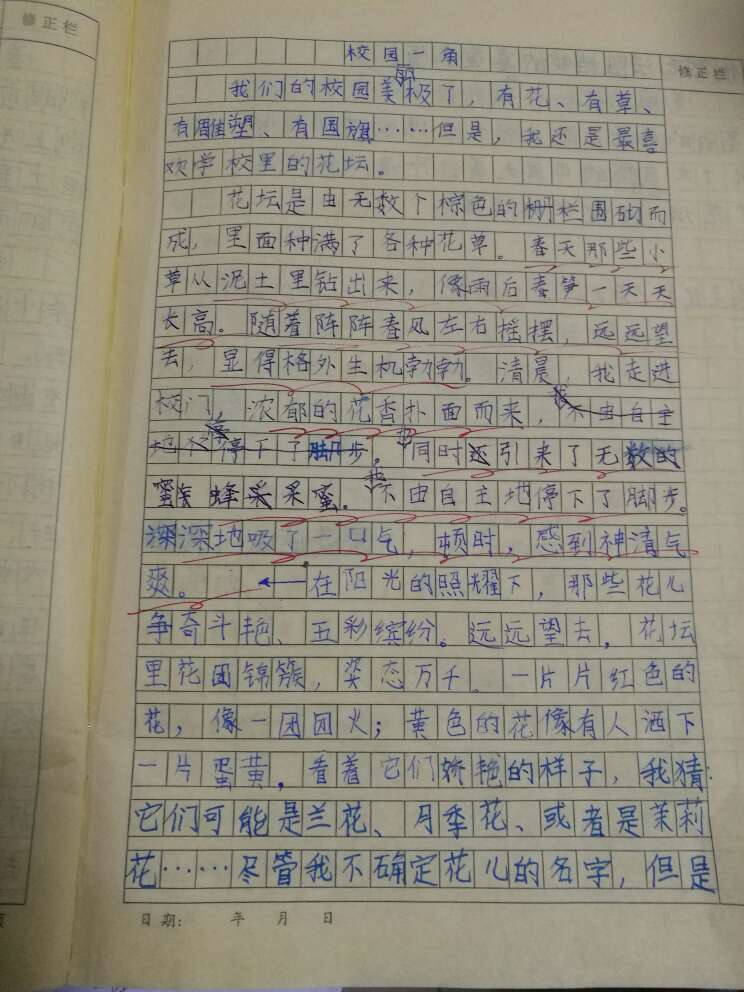 修正栏
修正栏
校园一角
我们的校园美丽极了，有花、有草、
有雕塑、有国旗……但是，我还是最喜
欢学校里的花坛。
花坛是由无数个棕色的栅栏围砌而
成，里面种满了各种花草。春天那些小
草从泥土里钻出来，像雨后春笋一天天
长高。随着阵阵春风左右摇摆，远远望
去，显得格外生机勃勃。清晨，我走进
校门，浓郁的花香扑面而来，我不由自主
地停下了脚步。同时还引来了无数的
蜜蜂采蜜。我不由自主地停下了脚步。
深深地吸了一口气，顿时，感到神清气
爽。在阳光的照耀下，那些花儿
争奇斗艳、五彩缤纷。远远望去，花坛
里花团锦簇，姿态万千。一片片红色的
花，像一团团火；黄色的花像有人洒下
一片蛋黄，看着它们娇艳的样子，我猜：
它们可能是兰花、月季花、或者是茉莉
花……尽管我不确定花儿的名字，但是
日期： 年 月 日